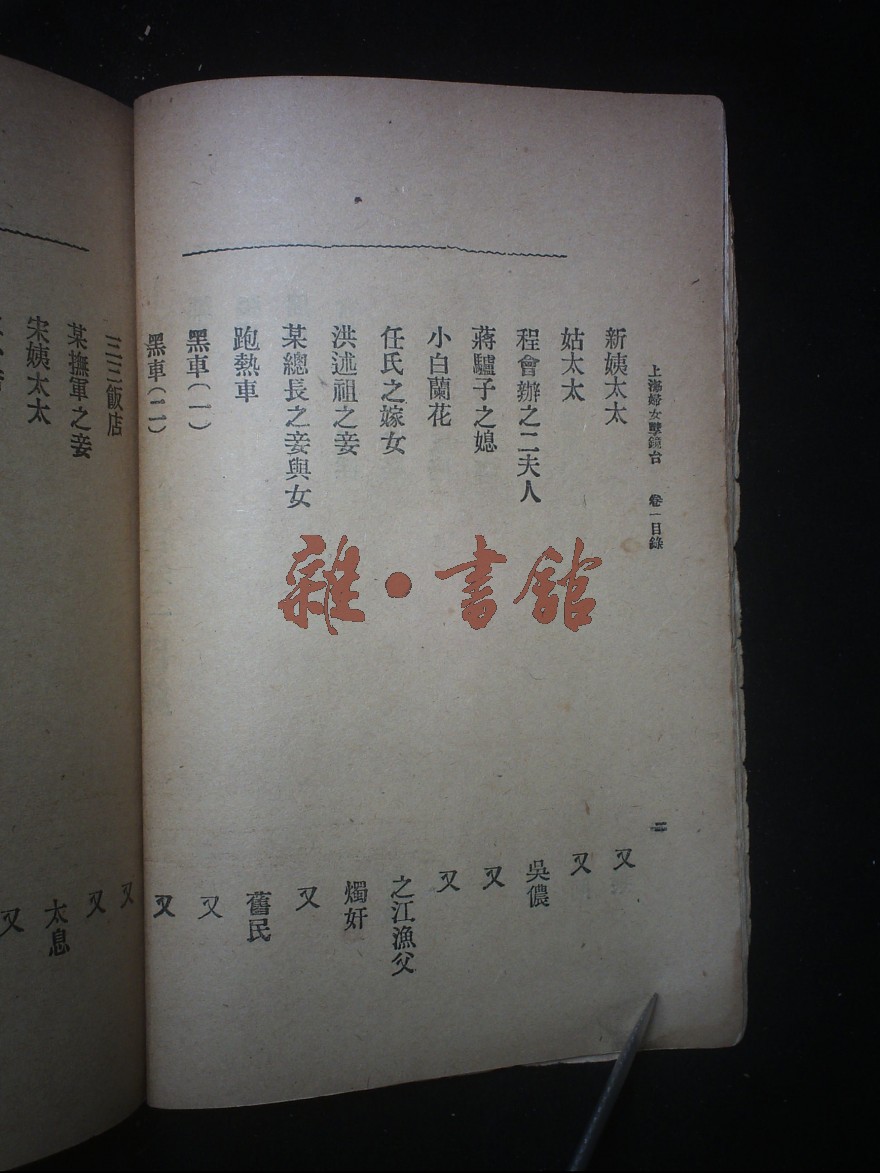 上海婦女孽鏡台 卷一目錄 二
新姨太太 又
姑太太 又
程會辦之二夫人 吳儂
蔣驢子之媳 又
小白蘭花 又
任氏之嫁女 之江漁父
洪述祖之妾 燭奸
某總長之妾與女 又
跑熱車 舊民
黑車(一) 又
黑車(二) 又
三三飯店 又
某撫軍之妾 又
宋姨太太 太息
又
雜·書館